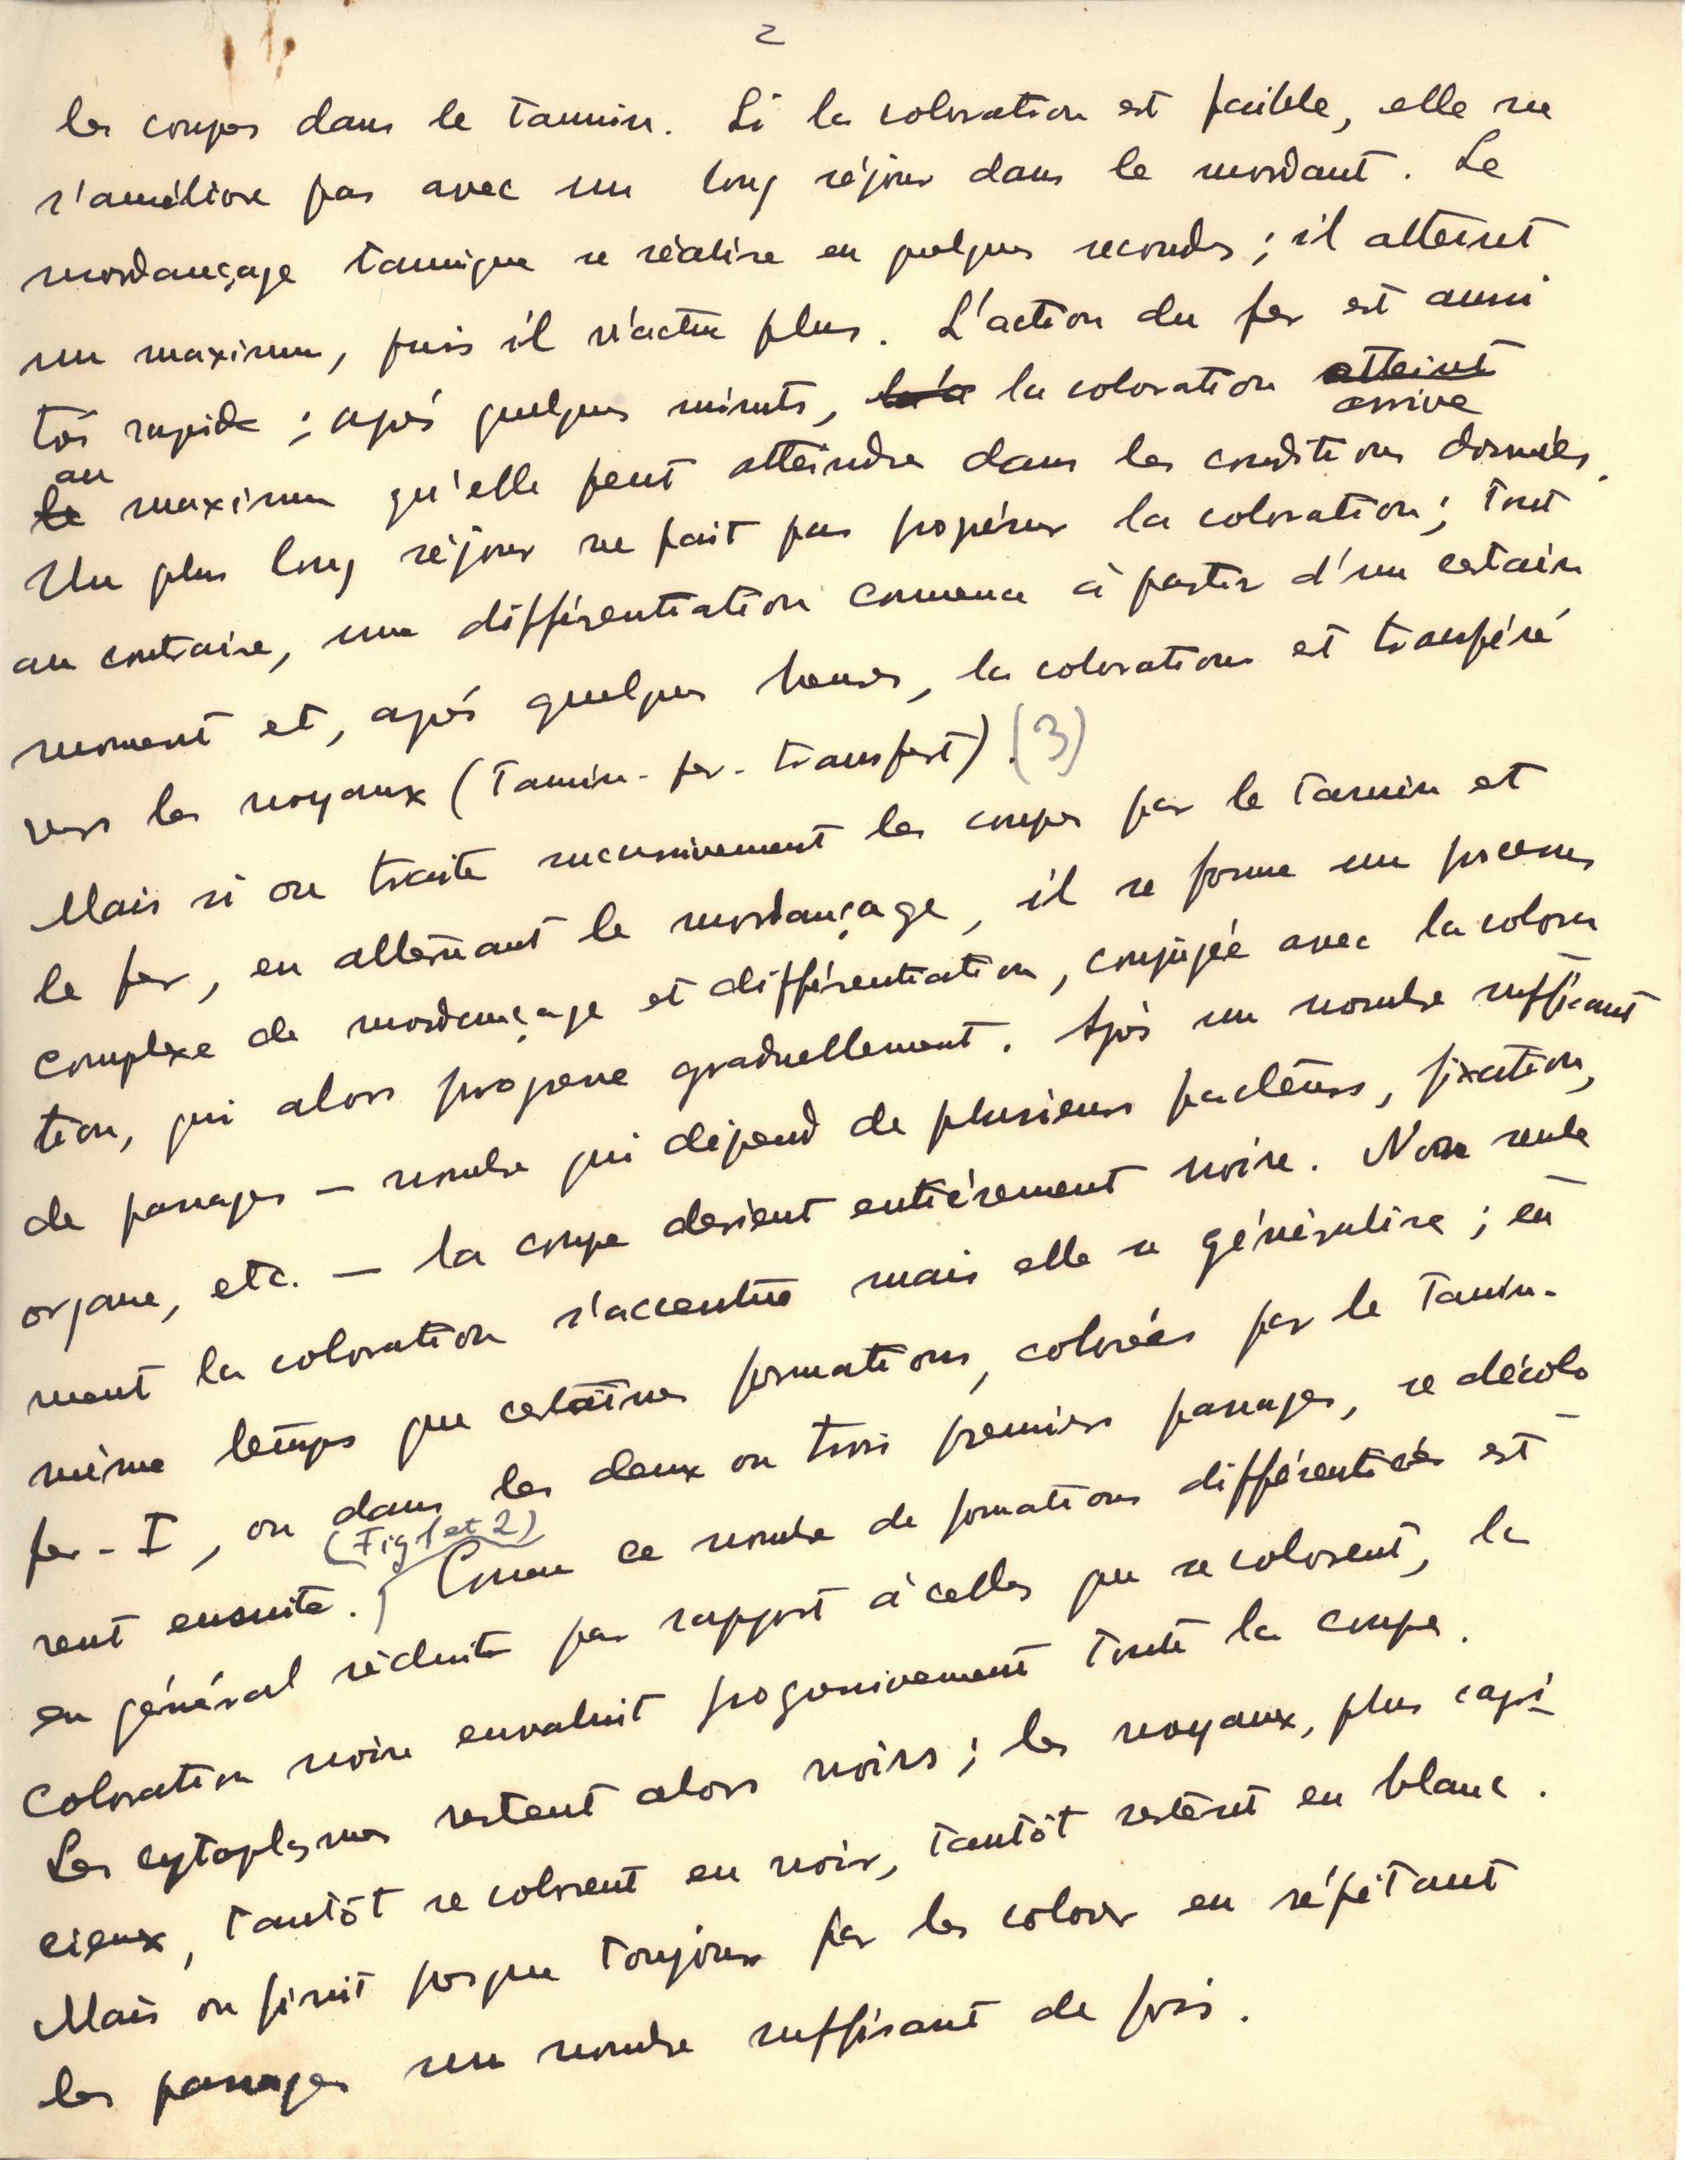 2
les coupes dans le tannin. Si la coloration est faible, elle ne
s'améliore pas avec un long séjour dans le mordant. Le
mordançage tannique se réalise en quelques secondes ; il atteint
un maximum, puis il n'actue plus. L'action du fer est aussi
très rapide ; après quelques minutes, la coloration atteint
arrive
au
le maximum qu'elle peut atteindre dans les conditions données.
Un plus long séjour ne fait pas progresser la coloration ; tout
au contraire, une différentiation commence à partir d'un certain
moment et, après quelques heures, la coloration est transférée
vers les noyaux (Tannin-fer-transfert). (3)
Mais si on traite successivement les coupes par le tannin et
le fer, en alternant le mordançage, il se forme un processus
complexe de mordançage et différentiation, conjugée avec la colora
tion, qui alors progresse graduellement. Après un nombre suffisant
de passages — nombre qui dépend de plusieurs facteurs, fixation,
organe, etc. — la coupe devient entièrement noire. Non seule
ment la coloration s'accentue mais elle se généralise ; en
même temps que certaines formations, colorées par le Tanin-
fer-I, ou dans les deux ou trois premiers passages, se décolo
(Fig 1 et 2)
rent ensuite. Comme ce nombre de formations différentiées est
en général réduite par rapport à celles que se colorent, la
coloration noire envahit progressivement toute la coupe.
Les cytoplasmes restent alors noirs ; les noyaux, plus capri-
cieux, tantôt se colorent en noir, tantôt restent en blanc.
Mais on finit presque toujours par les colorer en répétant
les passages un nombre suffisant de fois.